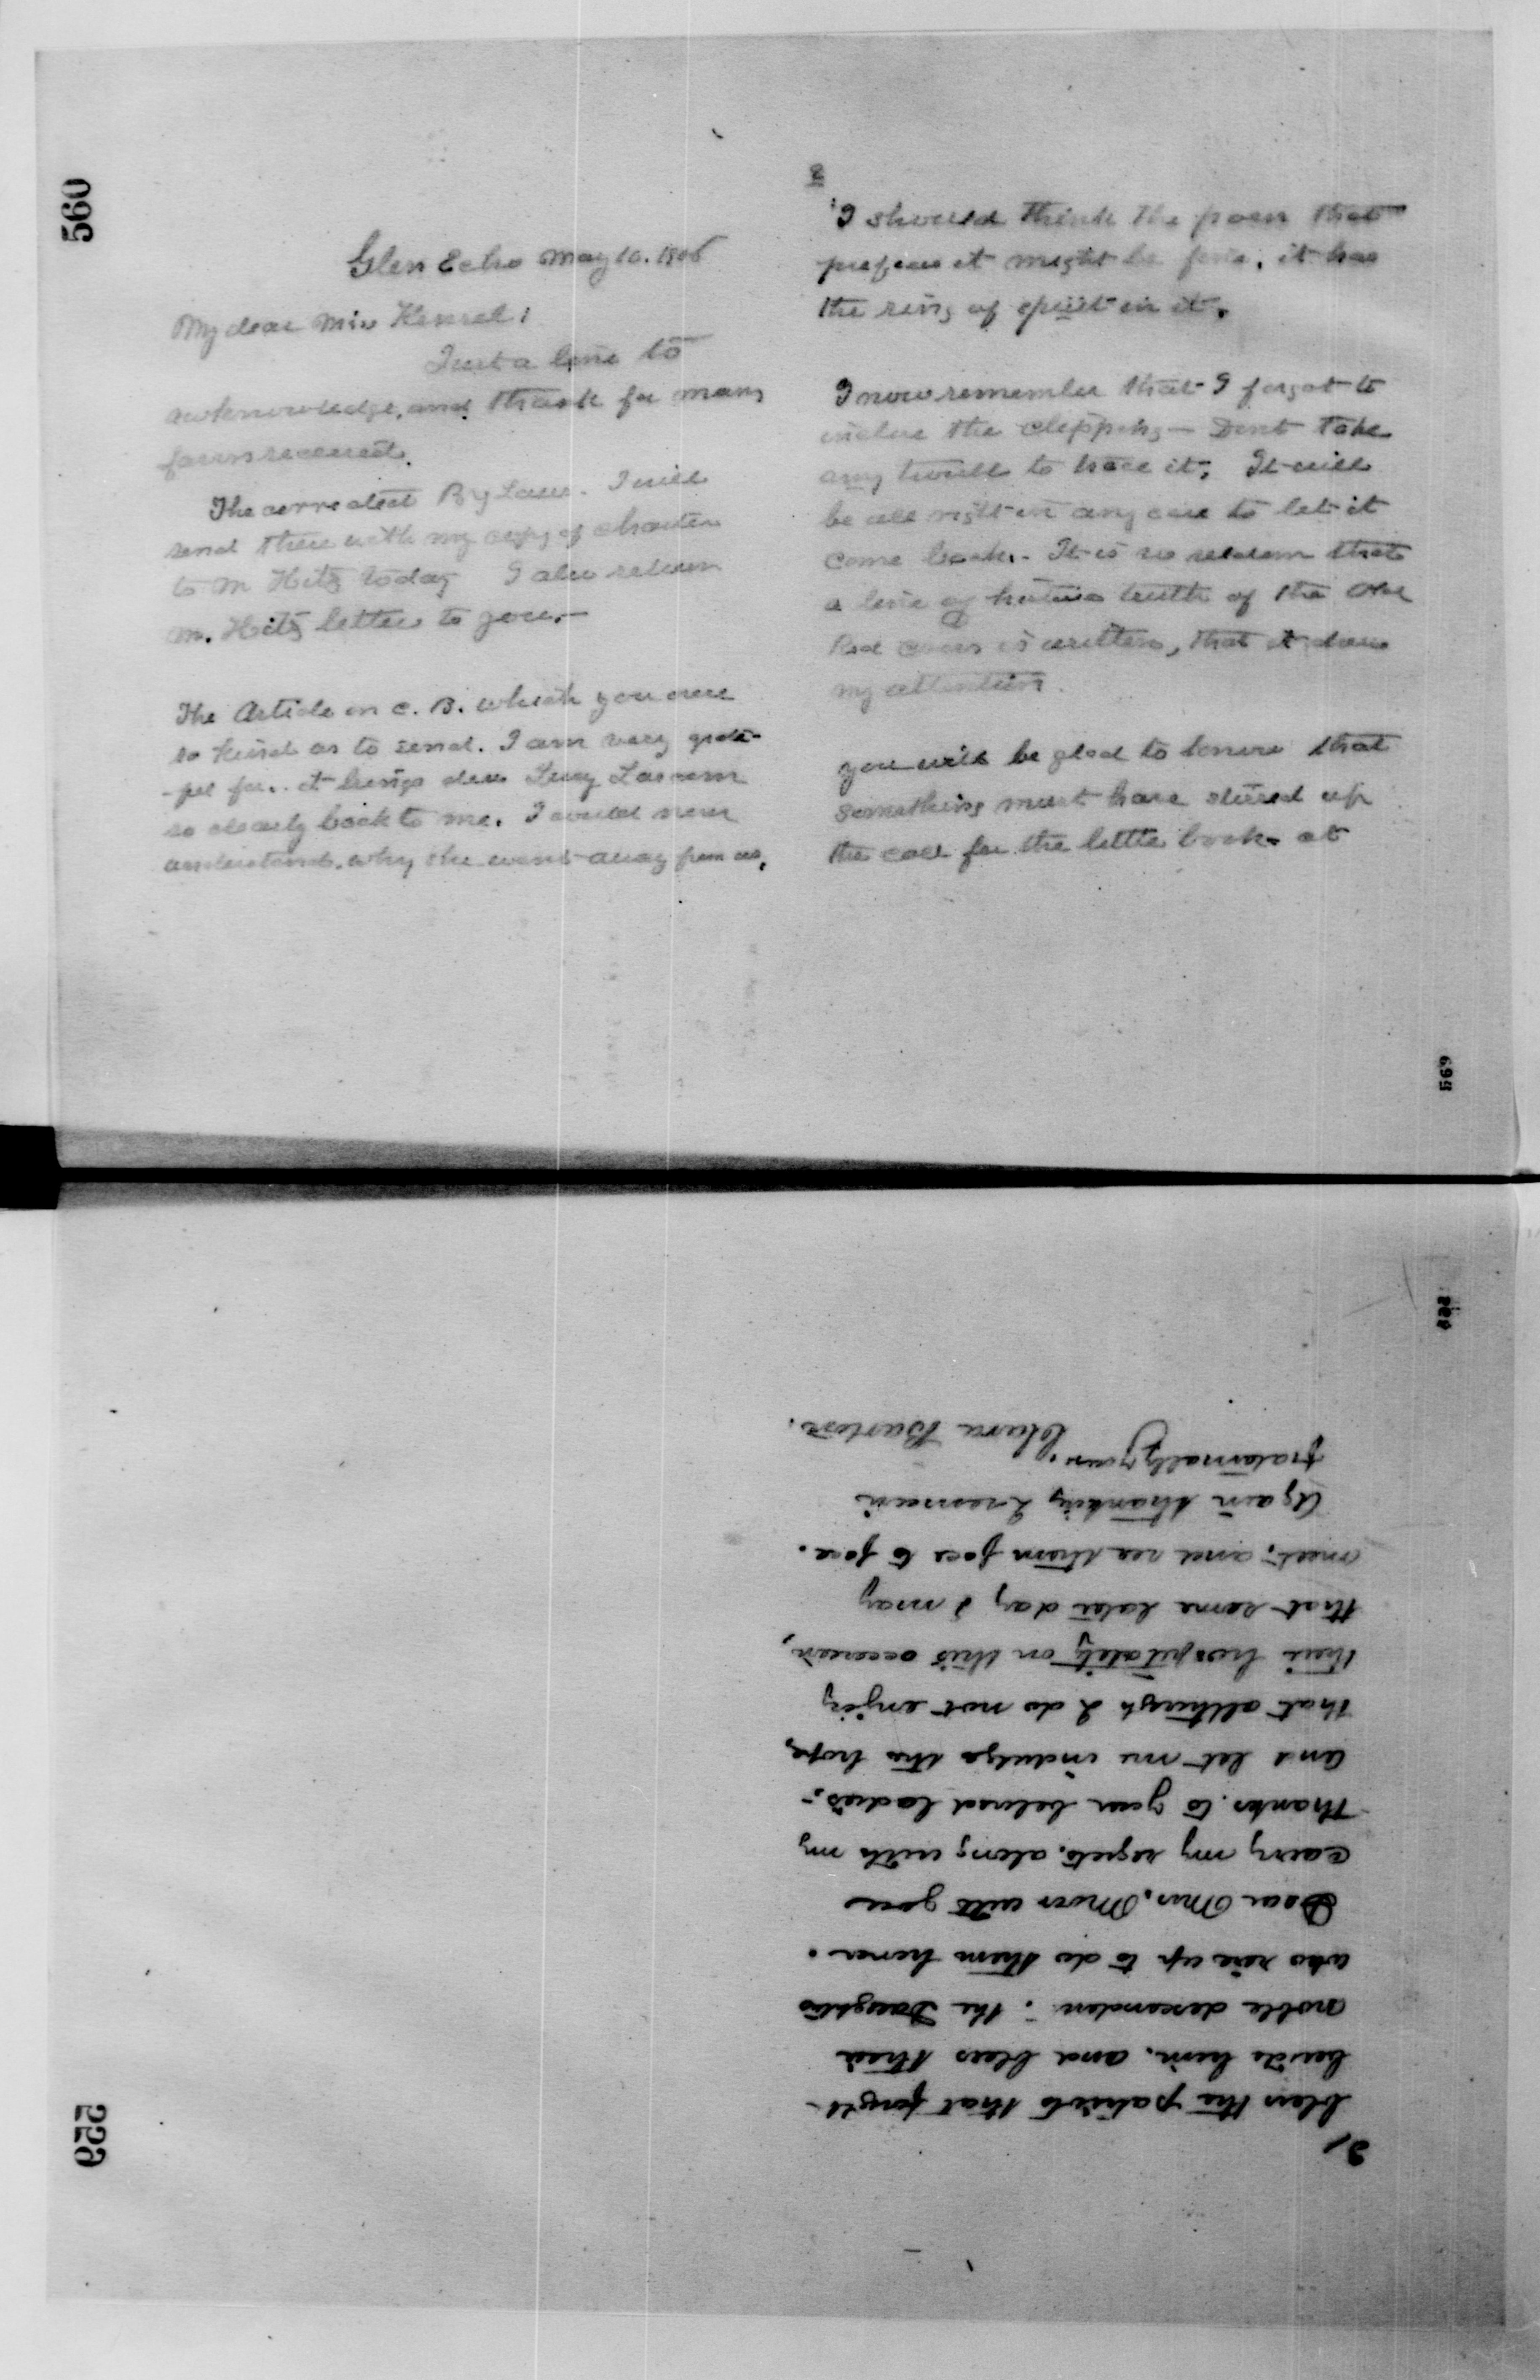 560
Glen Echo May 10. 1906
My dear Miss Hensel;
Just a line to
acknowledge, and thank for many
favors received.
The corrected By Laws. I will
send these with my copy of charter
to M Hitz today I also return
M. Hitz letter to you.—
The Article on C. B. which you were
so kind as to send. I am very grate-
-ful for.. it brings dear Lucy Larcom
so clearly back to me. I could never
understand. why she went away from us.
2
I should think the poem that
prefaces it might be fine. it has
the ring of spirit in it.
I now remember that I forgot to
inclose the clipping — Dont take
any trouble to trace it; It will
be all right in any case to let it
come back.- It is so seldom that
a line of truth of the old
Red Cross is written, that it draws
my attention.
you will be glad to know that
something must have stirred up
the call for the little book- at
569
559
2/
bless the patriots that fought
beside him. and bless their
noble descenden : the Daughters
who rise up to do them honor.
Dear Mrs. Moor will you
carry my regrets. along with my
thanks. to your beloved ladies;-
and let me indulge the hope,
that although I do not enjoy
their hospitality on this occasion,
that some later day I may
meet, and see them face to face.
Again thanking I remain
fraternally yours.
Clara Barton.